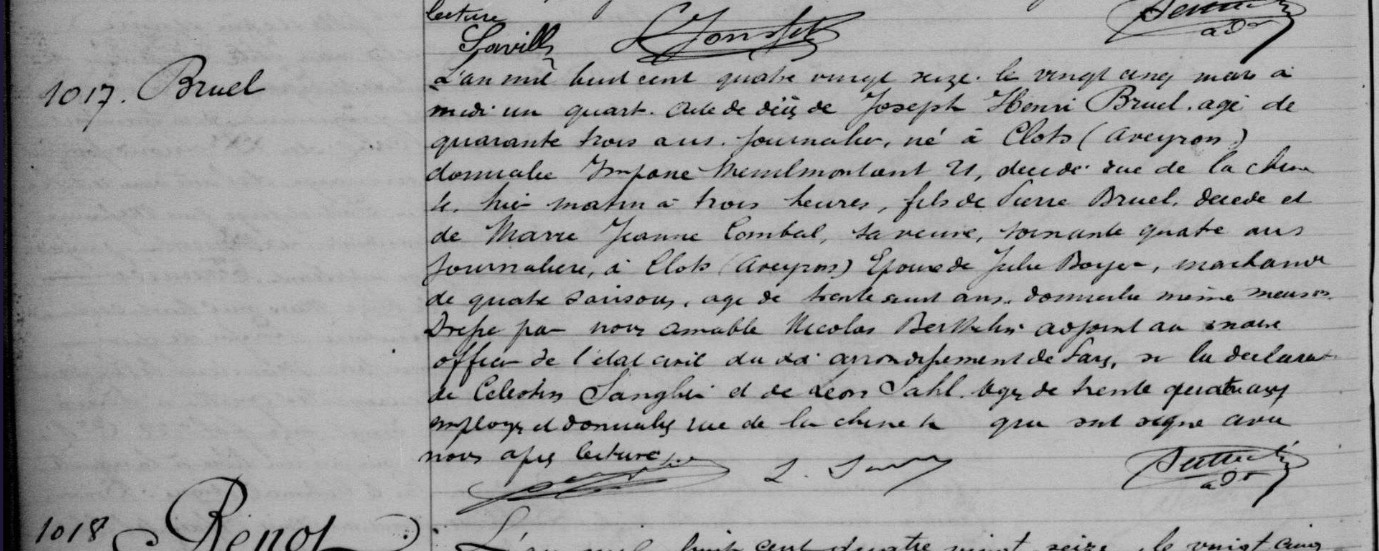 lecture
1017. Bruel
L'an mil huit cent quatre vingt seize. le vingt cinq mars à
midi un quart. Acte de décès de Joseph Henri Bruel. agé de
quarante trois ans. journalier, né à Clots (Aveyron)
domicilié Impasse Menilmontant 21, décédé rue de la Chine
4. hier matin à trois heures, fils de Pierre Bruel. décédé et
de Marie Jeanne Combal, sa veuve, soixante quatre ans
journalière, à Clots (Aveyron) Epoux de Julie Boyer, marchande
de quatre saisons, agé de trente ans. domiciliée même maison.
Dressé par nous Amable Nicolas Berthelin adjoint au maire
officier de l'état civil du XXe arrondissement de Paris, sr la déclarat
de Célestin et de Léon Sahl. agés de trente quatre ans
employés et domiciliés rue de la Chine 4 qui ont signé avec
nous après lecture
1018 Renot
L'an mil huit cent quatre vingt seize, le vingt cinq